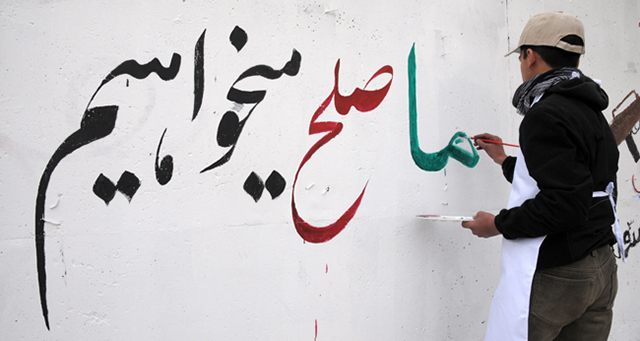 ما صلح میخواهیم